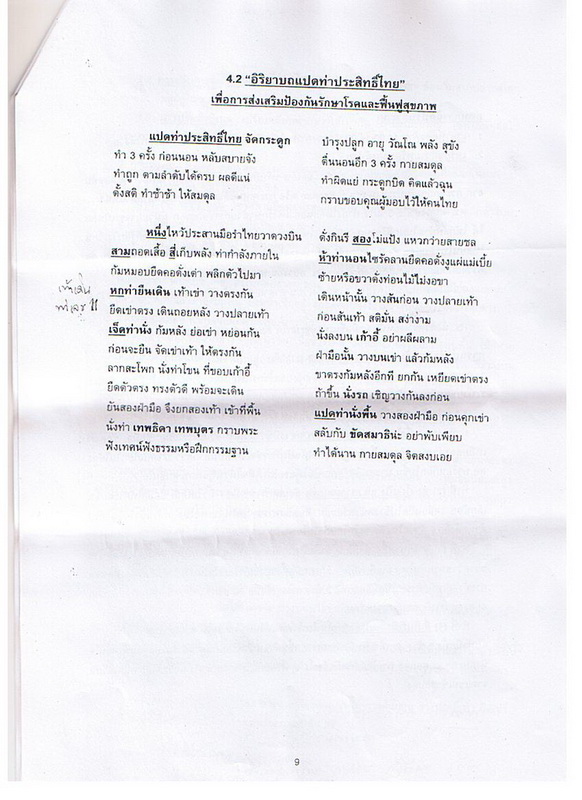 4.2 "อิริยาบถแปดท่าประสิทธิ์ไทย"
เพื่อการส่งเสริมป้องกันรักษาโรคและฟื้นฟูสุขภาพ
แปดท่าประสิทธิ์ไทย จัดกระดูก บำรุงปลูก อายุ วัณโณ พลัง สุขัง
ทำว 3 ครั้ง ก่อนนอน หลับสบายจัง ตื่นนอนอีก 3 ครั้ง กายสมดุล
ทำถูก ตามลำดับได้ครบ ผลดีแน่ ทำผิดแย่ กระดูกบิด คิดแล้วฉุน
ตั้งสติ ทำช้าช้า ให้สมดุล กราบขอบคุณผู้มอบไว้ให้คนไทย
หนึ่งไหว้ประสานมือรำไทยาดวงบิน ดั่งกินรี สองโม่แป้ง แหวกว่ายสายชล
สามถอดเสื้อ สี่เก็บพลัง ท่ากำลังภายใน ห้าท่านอนไซร้คลานยืดคอดั่งงูแผ่แม่เบี้ย
ก้มหมอบยืดคอดั่งเต่า พลิกตัวไปมา ซ้ายหรือขวาดั่งท่อนไม้ไม่งอขา
หกท่ายืนเดิน เท้าเข่า วางตรงกัน เดินหน้านั้น วางส้นก่อน วางปลายเท้า
ยืดเข่าตรง เดินถอยหลัง วางปลายเท้า ก่อนส้นเท้า สติมั่น สง่างาม
เจ็ดท่านั่ง ก้มหลัง ย่อเข่า หย่อนก้น นั่งลงบน เก้าอี้ อย่าผลีผลาม
ก่อนจะยืน จัดเข่าเท้า ให้ตรงกัน ฝ่ามือนั้น วางบนเข่า แล้วก้มหลัง
ลากสะโพก นั่งท่าโขน ที่ขอบเก้าอี้ ขาตรงก้มหลังอีกที ยกก้น เหยียดเข่าตรง
ยืดตัวตรง ทรงตัวดี พร้อมจะเดิน ถ้าขึ้น นั่งรถ เชิญวางก้นลงก่อน
ยันสองฝ่ามือ จึงยกสองเท้า เข้าที่พื้น แปดท่านั่งพื้น วางสองฝ่ามือ ก่อนคุกเข่า
นั่งท่า เทพธิดา เทพบุตร กราบพระ สลับกับ ขัดสมาธิน่ะ อย่าพับเพียบ
ฟังเทศน์ฟังธรรมหรือฝึกกรรมฐาน ทำได้นาน กายสมดุล จิตสงบเอย
9